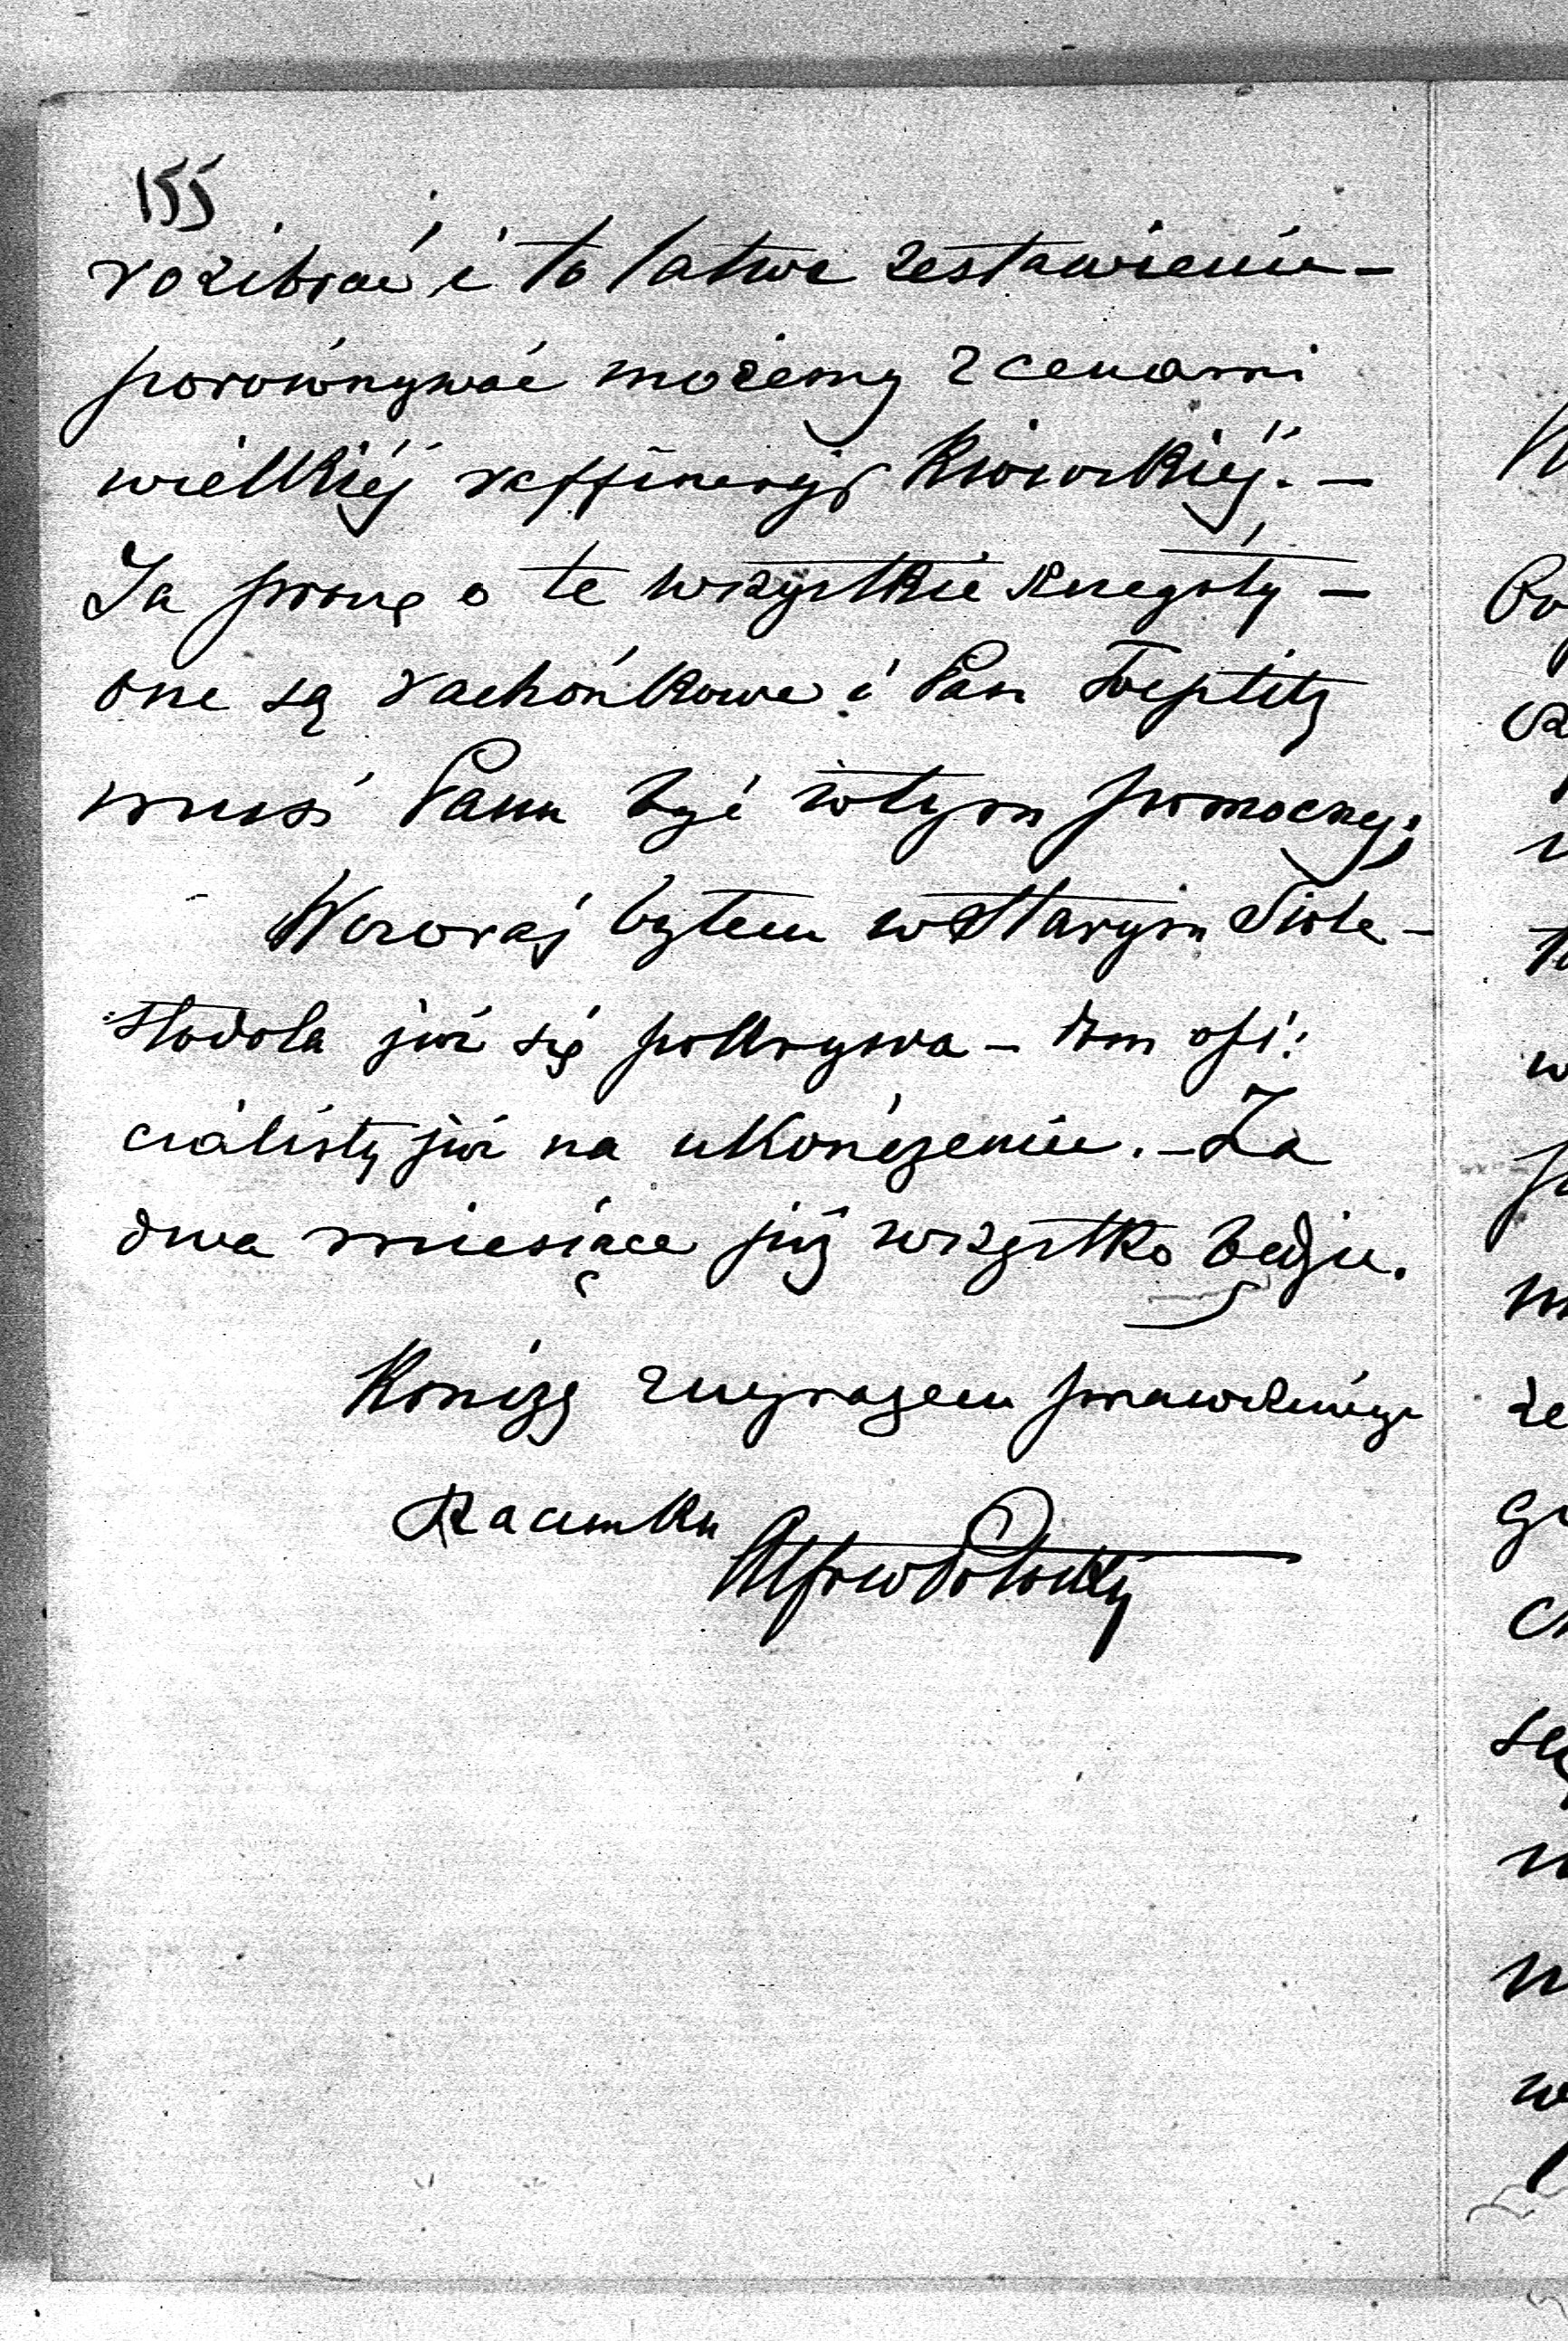 155
rozebrać i to łatwe zestawienie –
porównywać możemy z cenami
wielkiéj raffineryi Kiiowskiéj. –
Ja proszę o te wszystkie szczegóły –
one są rachónkowe i Pan Toeplitz
musi Panu być w tym pomocny;
Wczoraj byłem w Starym Siole –
stodoła już się pokrywa – dom ofi:
cialisty już na ukończeniu. – Za
dwa miesiące już wszystko będzie.
Kończę z wyrazem prawdziwego
szacunku
Alfred Potocki